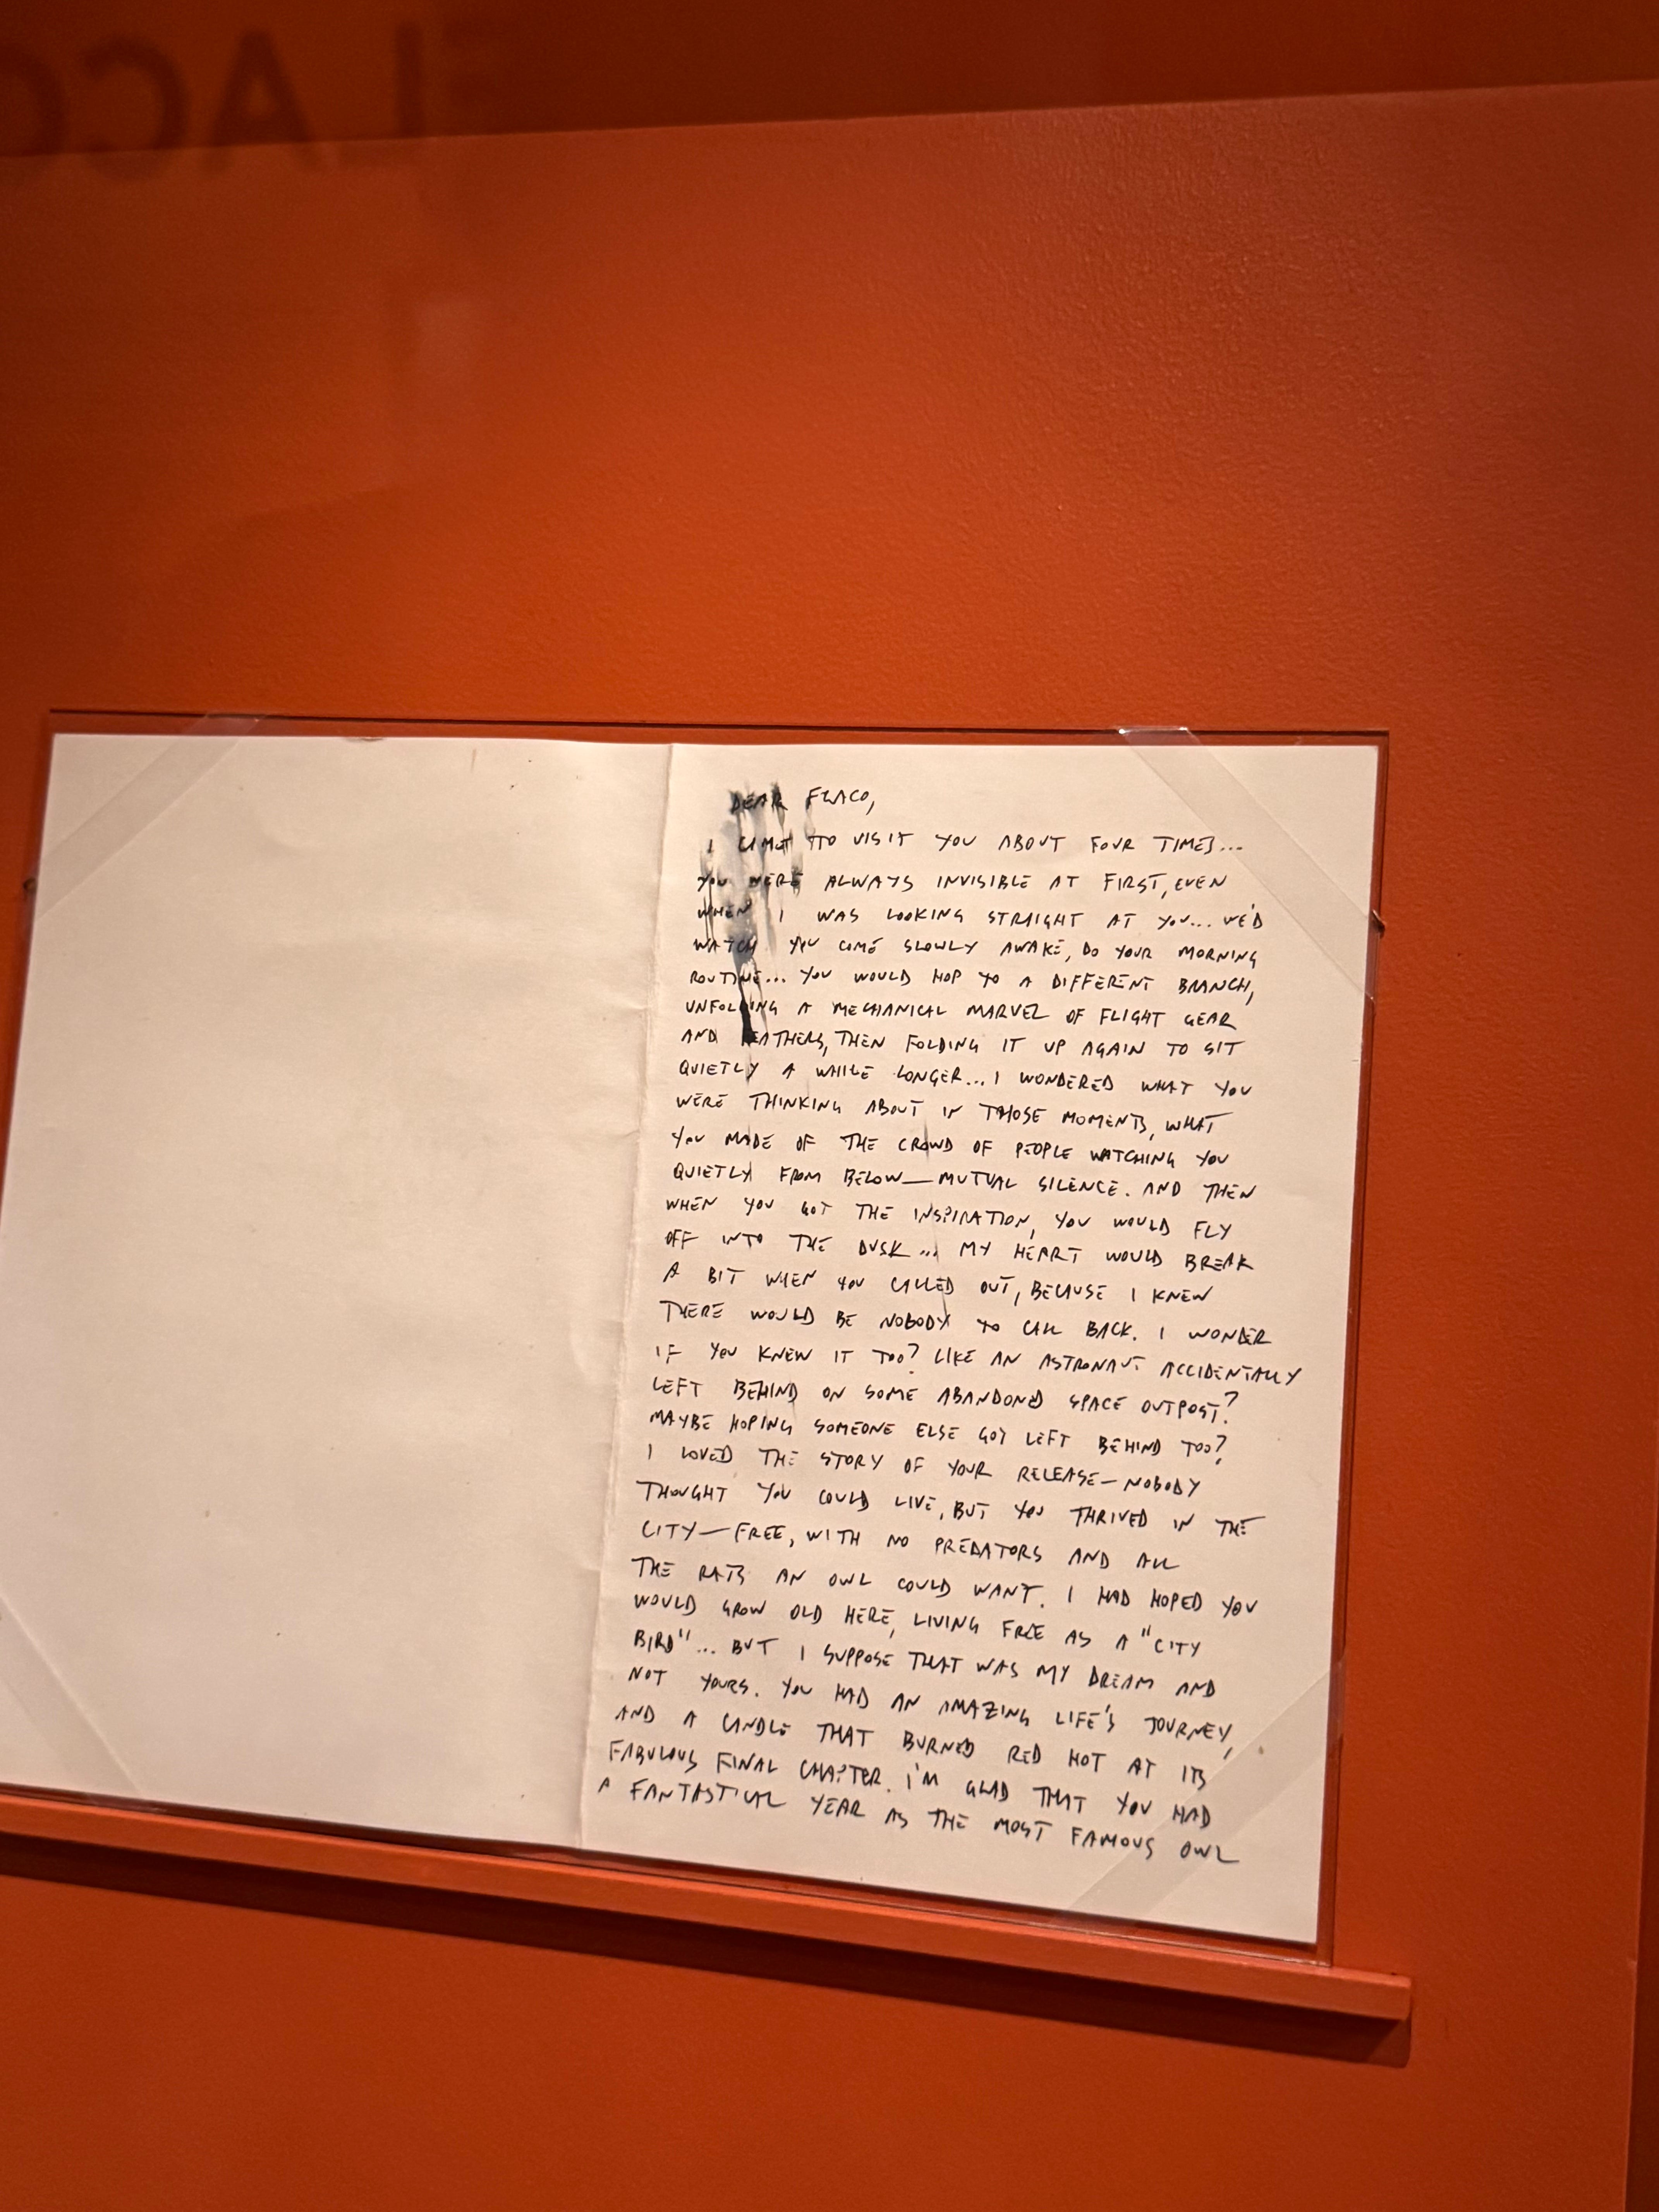 DEAR FLACO,
I CAME TO VISIT YOU ABOUT FOUR TIMES...
YOU WERE ALWAYS INVISIBLE AT FIRST, EVEN
WHEN I WAS LOOKING STRAIGHT AT YOU... WE'D
WATCH YOU COME SLOWLY AWAKE, DO YOUR MORNING
ROUTINE... YOU WOULD HOP TO A DIFFERENT BRANCH,
UNFOLDING A MECHANICAL MARVEL OF FLIGHT GEAR
AND FEATHERS, THEN FOLDING IT UP AGAIN TO SIT
QUIETLY A WHILE LONGER... I WONDERED WHAT YOU
WERE THINKING ABOUT IN THOSE MOMENTS, WHAT
YOU MADE OF THE CROWD OF PEOPLE WATCHING YOU
QUIETLY FROM BELOW—MUTUAL SILENCE. AND THEN
WHEN YOU GOT THE INSPIRATION, YOU WOULD FLY
OFF INTO THE DUSK... MY HEART WOULD BREAK
A BIT WHEN YOU CALLED OUT, BECAUSE I KNEW
THERE WOULD BE NOBODY TO CALL BACK. I WONDER
IF YOU KNEW IT TOO? LIKE AN ASTRONAUT ACCIDENTALLY
LEFT BEHIND ON SOME ABANDONED SPACE OUTPOST?
MAYBE HOPING SOMEONE ELSE GOT LEFT BEHIND TOO?
I LOVED THE STORY OF YOUR RELEASE—NOBODY
THOUGHT YOU COULD LIVE, BUT YOU THRIVED IN THE
CITY—FREE, WITH NO PREDATORS AND ALL
THE RATS AN OWL COULD WANT. I HAD HOPED YOU
WOULD GROW OLD HERE, LIVING FREE AS A "CITY
BIRD"... BUT I SUPPOSE THAT WAS MY DREAM AND
NOT YOURS. YOU HAD AN AMAZING LIFE'S JOURNEY,
AND A CANDLE THAT BURNED RED HOT AT ITS
FABULOUS FINAL CHAPTER. I'M GLAD THAT YOU HAD
A FANTASTICAL YEAR AS THE MOST FAMOUS OWL